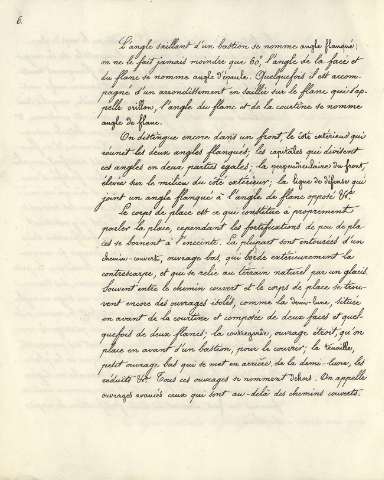 6.
L'angle saillant d'un bastion se nomme angle flanqué,
on ne le fait jamais moindre que 60°, l'angle de la face et
du flanc se nomme angle d'épaule. Quelquefois il est accom-
pagné d'un arrondissement en saillie sur le flanc qui s'ap-
pelle orillon, l'angle du flanc et de la courtine se nomme
angle de flanc.
On distingue encore dans un front, le côté extérieur qui
réunit les deux angles flanqués; les capitales qui divisent
ces angles en deux parties égales; la perpendiculaire du front,
élevée sur le milieu du côté extérieur; la ligne de défense qui
joint un angle flanqué à l'angle de flanc opposé &c.
Le corps de place est ce qui constitue à proprement
parler la place, cependant les fortifications de peu de pla-
ces se bornent à l'enceinte. La plupart sont entourées d'un
chemin-couvert, ouvrage bas, qui borde extérieurement la
contrescarpe, et qui se relie au terrain naturel par un glacis.
Souvent entre le chemin couvert et le corps de place se trou-
vent encore des ouvrages isolés, comme la demi-lune, située
en avant de la courtine et composée de deux faces et quel-
quefois de deux flancs; la contregarde, ouvrage étroit, qu'on
place en avant d'un bastion, pour le couvrir; la tenaille,
petit ouvrage bas qui se met en arrière de la demi-lune, les
réduits &c. Tous ces ouvrages se nomment dehors. On appelle
ouvrages avancés ceux qui sont au-delà des chemins couverts.